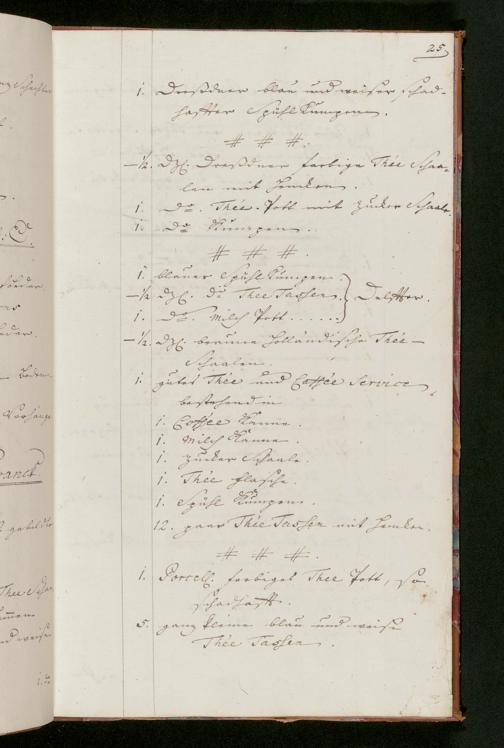 25.
1. Dresdner blau und weiser schad-
hafter Spühl Kumpen.
# # #.
—½. Dz. Dresdner farbige Thée Schaa-
len mit Henken.
1. Do. Thée-Pott mit Zucker Schaale.
1. Do Kumpen.
# # #.
1. blauer Spühl Kumpen
—½ Dz. do Thee Tassen. } Delfter.
1. Do. Milch Pott......
—½. Dz. braune Holländische Thée-
Schaalen.
1. gutes Thée und Coffée Service
bestehend in
1. Coffée Kanne.
1. Milch Kanne.
1. Zucker Schaale.
1. Thée flasche.
1. Spühl Kumpen.
12. paar Thée Tassen mit Henken.
# # #.
1. Porcell. farbiges Thee Pott, so
schadhaft.
5. ganz kleine blau und weise
Thée Tassen.